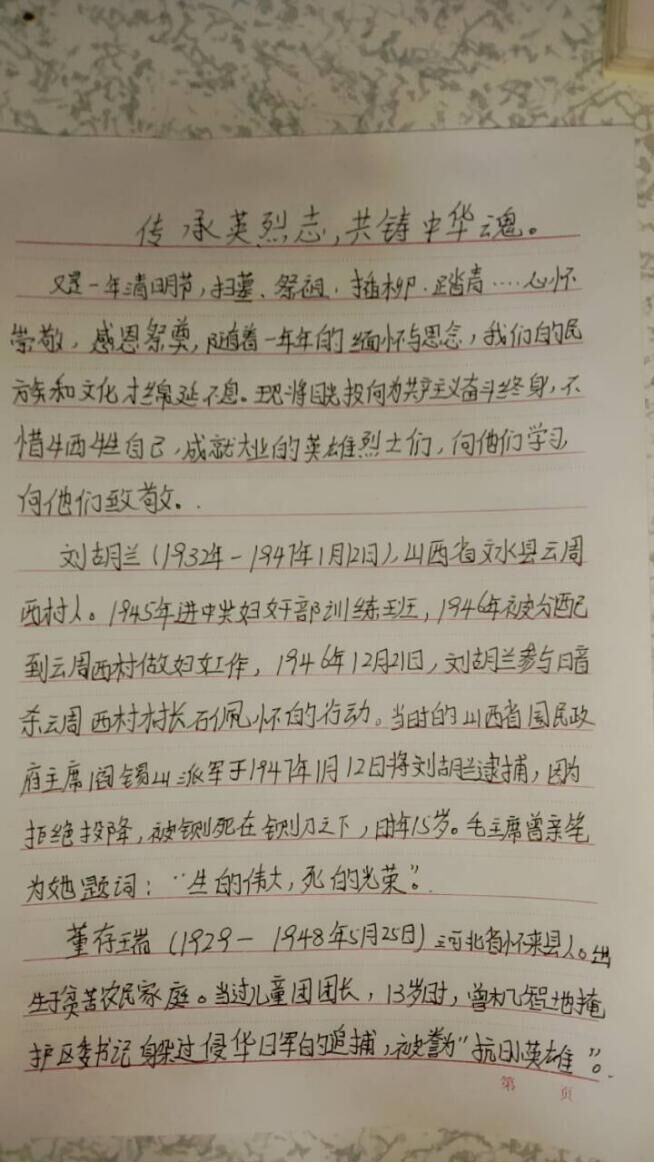 传承英烈志，共铸中华魂。
又是一年清明节，扫墓、祭祖、插柳、踏青……心怀
崇敬，感恩祭奠，随着一年年的缅怀与思念，我们的民
族和文化才绵延不息。把将目光投向为共产主义奋斗终身，不
惜牺牲自己，成就大业的英雄烈士们，向他们学习
向他们致敬。
刘胡兰（1932年-1947年1月12日），山西省文水县云周
西村人。1945年进中共妇女干部训练班，1946年被分配
到云周西村做妇女工作，1946年12月21日，刘胡兰参与暗
杀云周西村村长石佩怀的行动。当时的山西省国民政
府主席阎锡山派军于1947年1月12日将刘胡兰逮捕，因为
拒绝投降，被铡死在铡刀之下，时年15岁。毛主席曾亲笔
为她题词：“生的伟大，死的光荣”。
董存瑞（1929-1948年5月25日）河北省怀来县人。出
生于贫苦农民家庭。当过儿童团团长，13岁时，曾机智地掩
护区委书记躲过侵华日军的追捕，被誉为“抗日小英雄”。
第 页